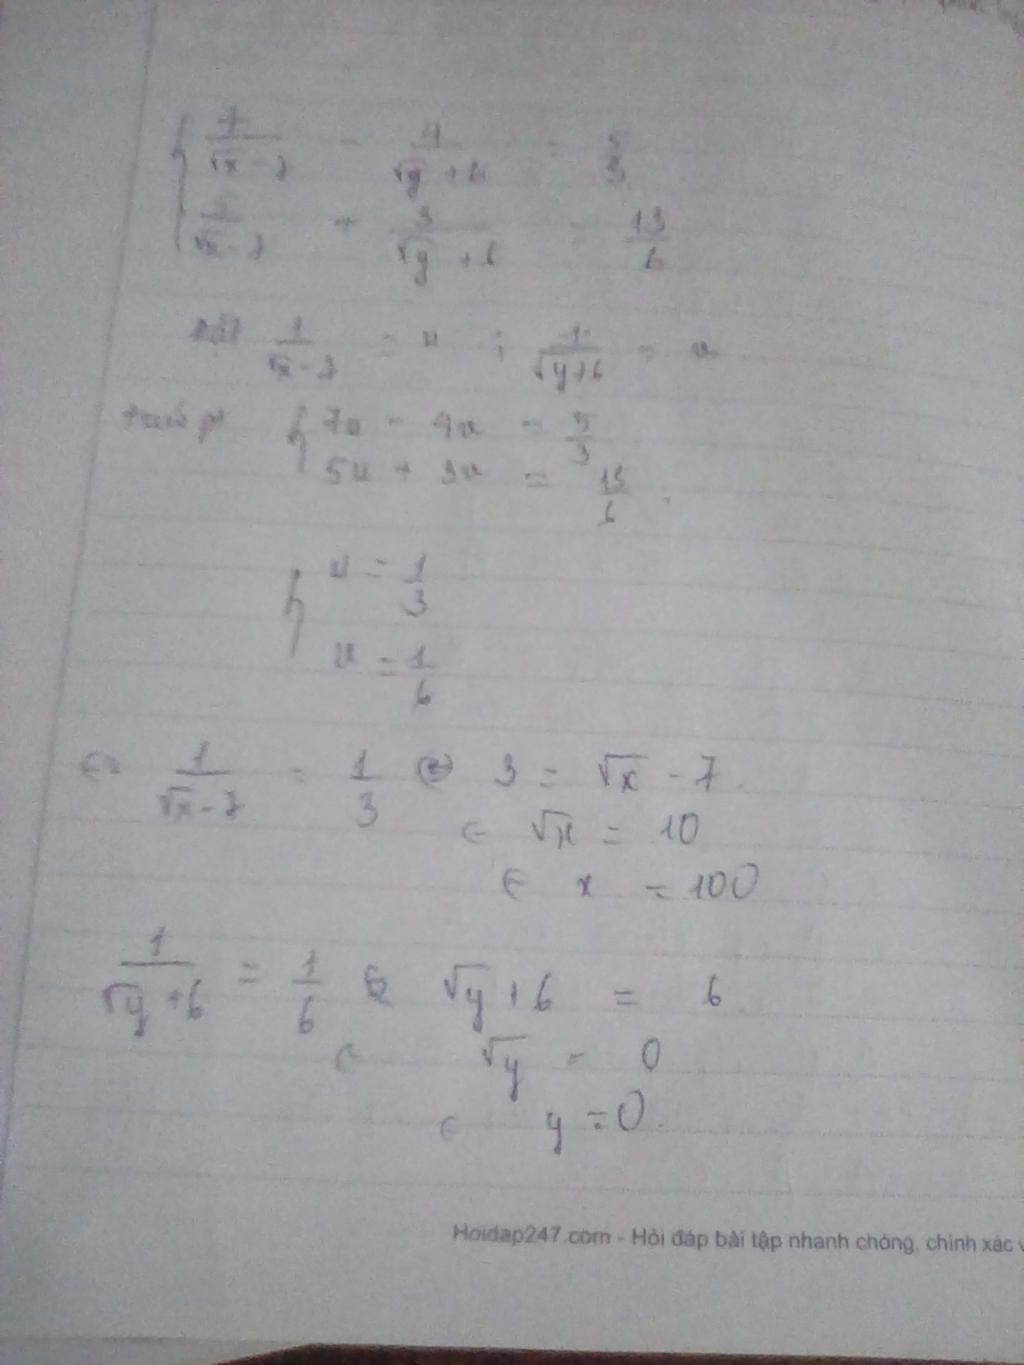 { 7/(√x - 7) - 4/(√y + 6) = 5/3
5/(√x - 7) + 3/(√y + 6) = 13/6
Đặt 1/(√x - 7) = u ; 1/(√y + 6) = v
{ 7u - 4v = 5/3
5u + 3v = 13/6
{ u = 1/3
v = 1/6
⇔ 1/(√x - 7) = 1/3 ⇔ 3 = √x - 7
⇔ √x = 10
⇔ x = 100
1/(√y + 6) = 1/6 ⇔ √y + 6 = 6
⇔ √y = 0
⇔ y = 0.
Hoidap247.com - Hỏi đáp bài tập nhanh chóng, chính xác v